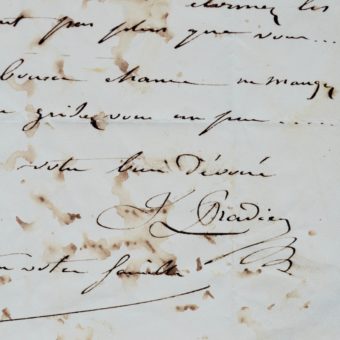 les
pas plus que vous ...
chance ne manque
grisez vous un peu .....
votre bien dévoué
J Pradier
votre famille